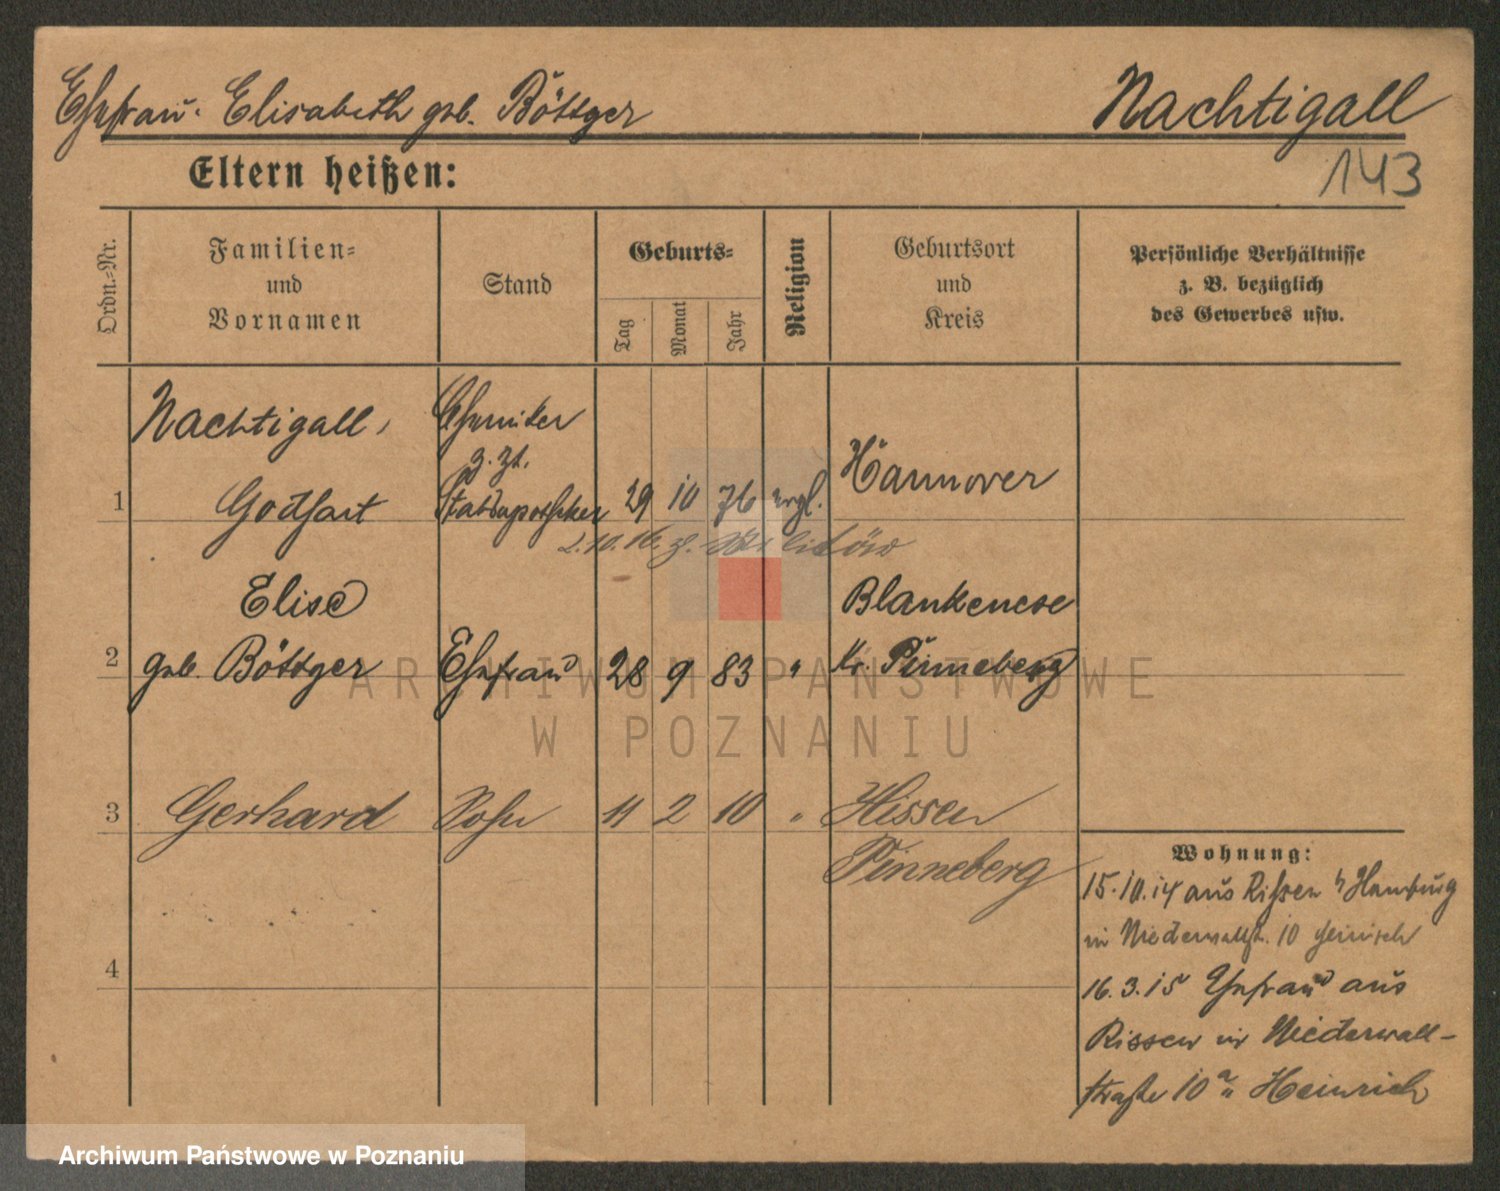 Ehefrau. Elisabeth geb. Böttger
Nachtigall
143
Eltern heißen:
Ordn.-Nr.
Familien-
und
Vornamen
Stand
Geburts-
Tag
Monat
Jahr
Religion
Geburtsort
und
Kreis
Persönliche Verhältnisse
z. B. bezüglich
des Gewerbes usw.
1
Nachtigall,
Godhart
Chemiker
z. Zt.
Stabsapotheker
29 10 76 evgl.
Hannover
2.10.16. z.
2
Elise
geb. Böttger
Ehefrau
28 9 83 "
Blankenese
Kr. Pinneberg
3
Gerhard
Sohn
11 2 10 "
Rissen
Pinneberg
4
Wohnung:
15.10.14 aus Rissen b/ Hamburg
in Niederwallstr. 10 Heinrich
16.3.15 Ehefrau aus
Rissen in Niederwall-
straße 10a "Heinrich
ARCHIWUM PAŃSTWOWE
W POZNANIU
Archiwum Państwowe w Poznaniu